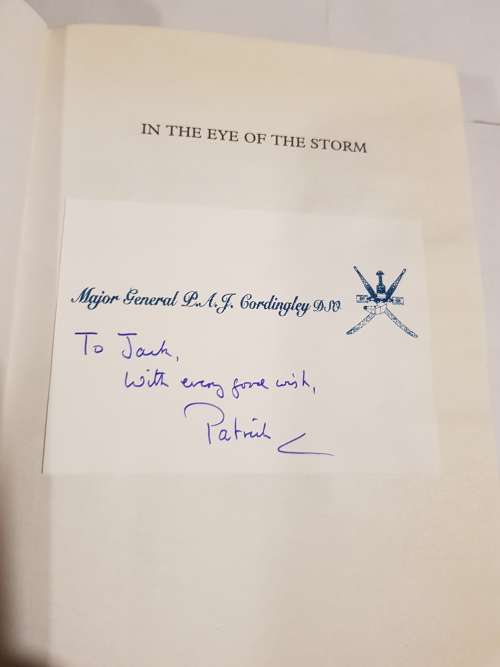 IN THE EYE OF THE STORM
Major General P.A.J. Cordingley DSO
To Jack,
With every good wish,
Patrick C